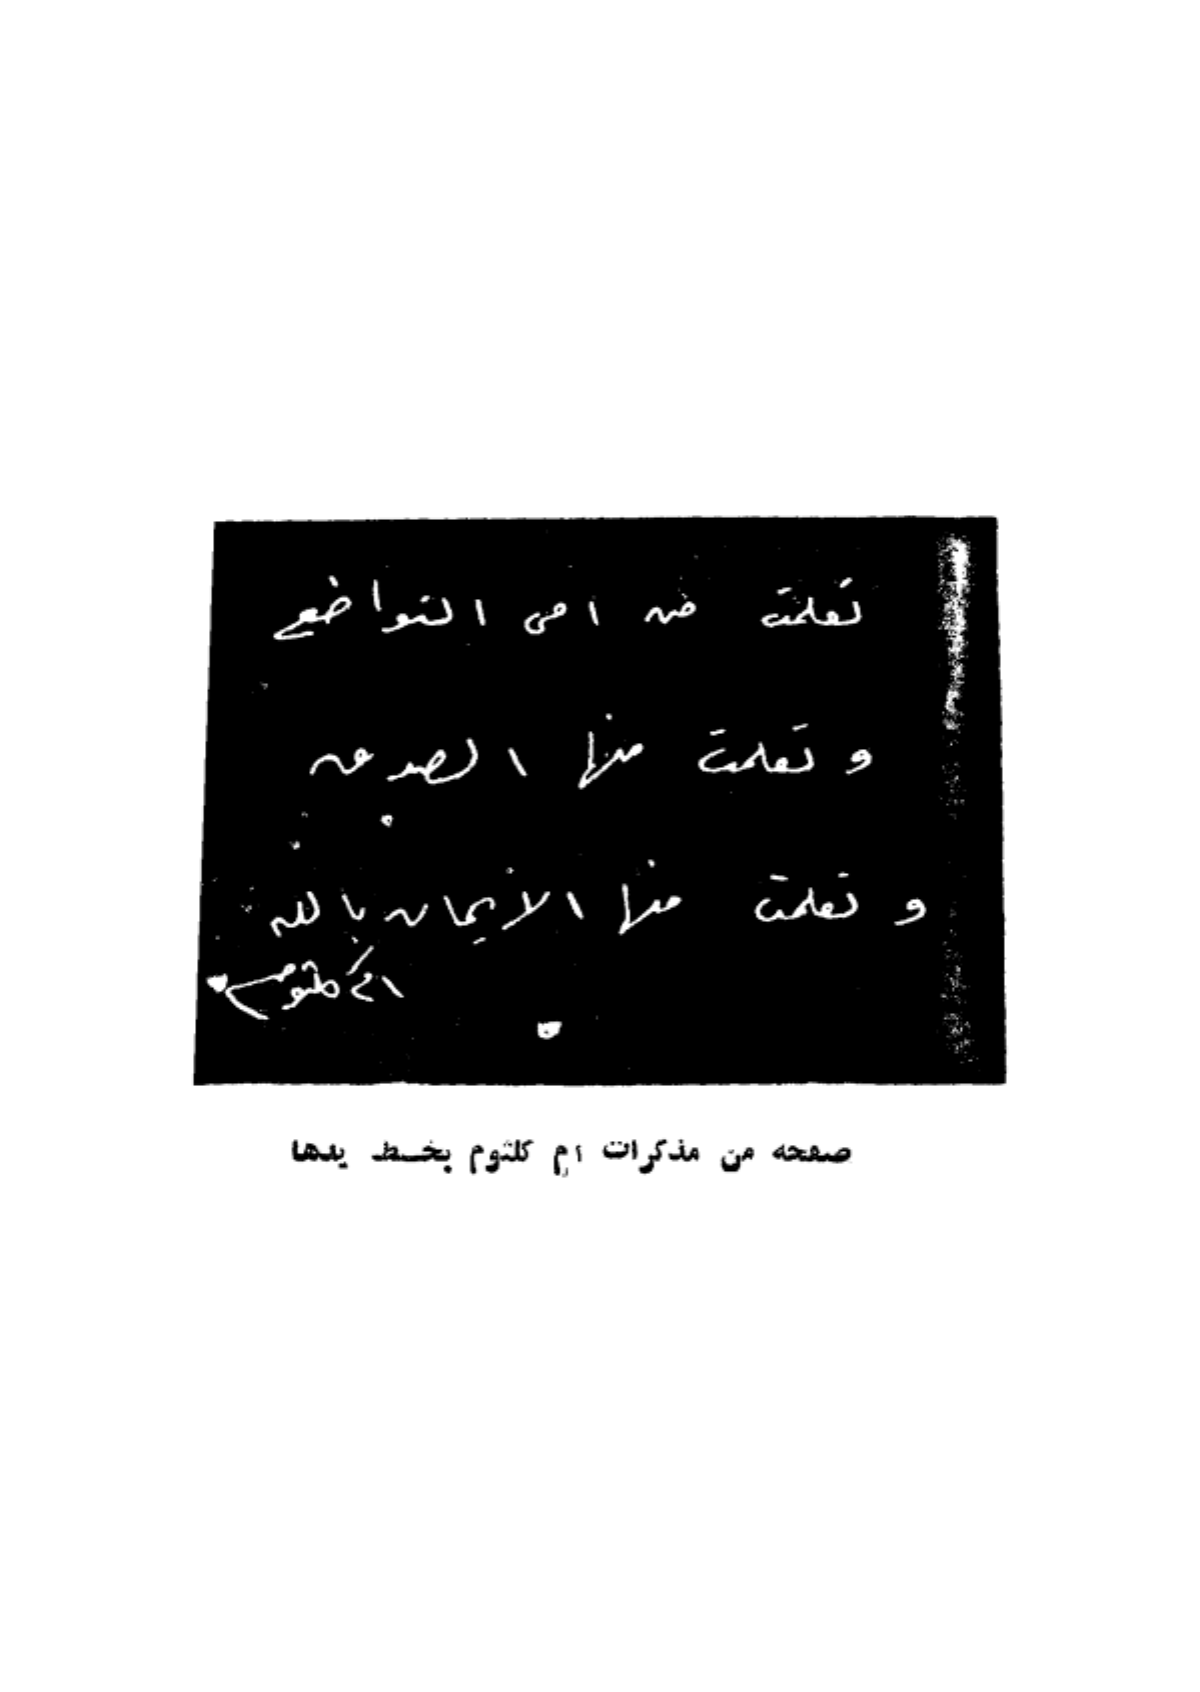 تعلمت من امى التواضع
و تعلمت منها الصدق
و تعلمت منها الأيمان بالله
ام كلثوم
صفحه من مذكرات ام كلثوم بخط يدها